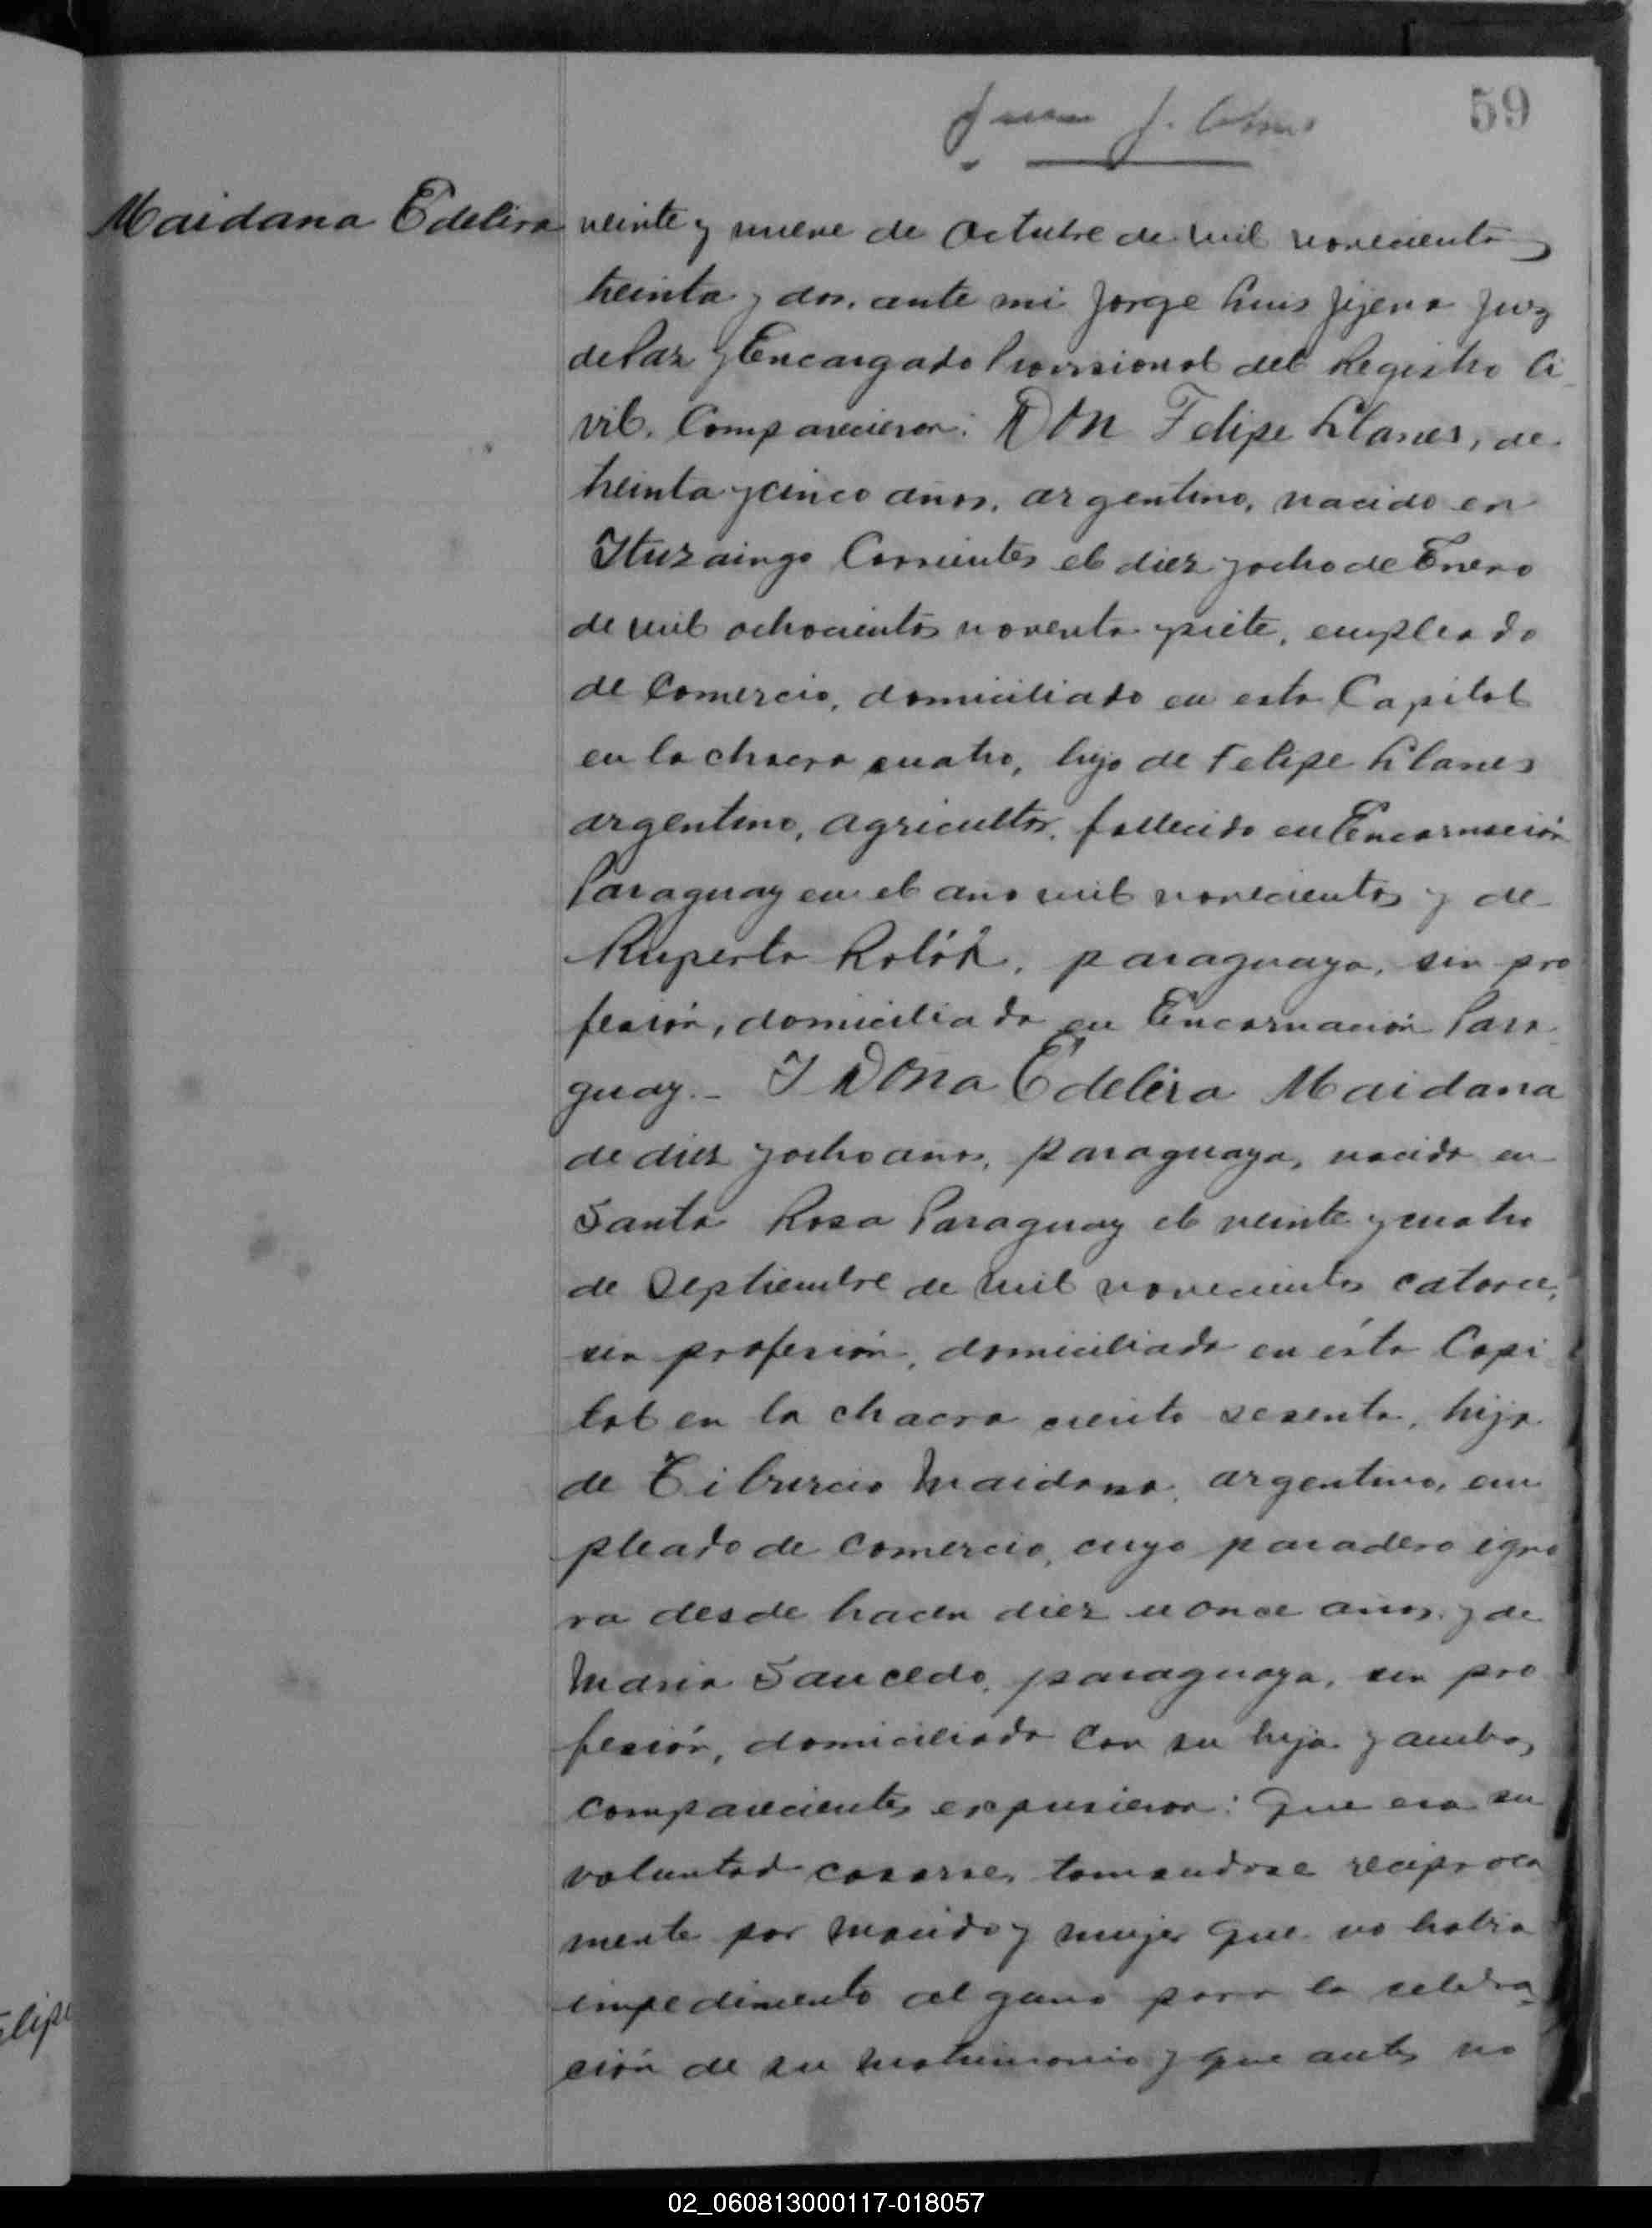 59
Maidana Edelira
veinte y nueve de Octubre de mil novecientos
treinta y dos, ante mi Jorge Luis Jijena Juez
de Paz y Encargado Provisional del Registro Ci
vil. Comparecieron: DON Felipe Llanes, de
treinta y cinco años, argentino, nacido en
Ituzaingo Corrientes el diez y ocho de Enero
de mil ochocientos noventa y siete, empleado
de Comercio, domiciliado en esta Capital
en la chacra cuatro, hijo de Felipe Llanes
argentino, agricultor, fallecido en Encarnación
Paraguay en el año mil novecientos y de
Ruperta Rolón, paraguaya, sin pro
fesión, domiciliada en Encarnación Para
guay.- Y DOña Edelira Maidana
de diez y ocho años, paraguaya, nacida en
Santa Rosa Paraguay el veinte y cuatro
de Septiembre de mil novecientos catorce,
sin profesión, domiciliada en ésta Capi
tal en la chacra ciento sesenta, hija
de Tiburcio Maidana, argentino, em
pleado de Comercio, cuyo paradero igno
ra desde hacen diez u once años y de
Maria Saucedo, paraguaya, sin pro
fesión, domiciliada con su hija y ambos
comparecientes expusieron: Que era su
voluntad casarse, tomandose reciproca
mente por marido y mujer que no habia
impedimento alguno para la celebra
ción de su matrimonio y que antes no
elipe
02_060813000117-018057